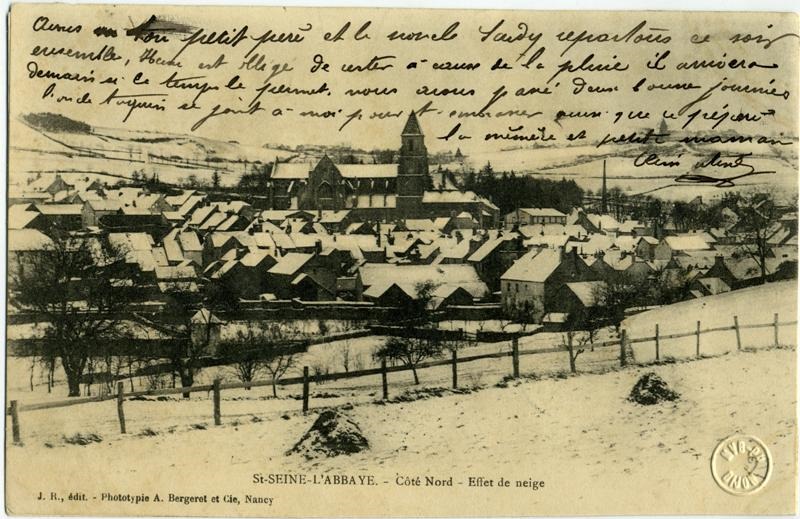 petit père et le noncle Sardy repartons ce soir
ensemble, est obligé de rester à cause de la pluie il arrivera
demain si le temps le permet. nous avons passé deux bonne journées
l'oncle se joint à moi pour t embrasser ainsi que le père
la mémère et petite maman
St-SEINE-L'ABBAYE. - Côté Nord - Effet de neige
J. R., édit. - Phototypie A. Bergeret et Cie, Nancy